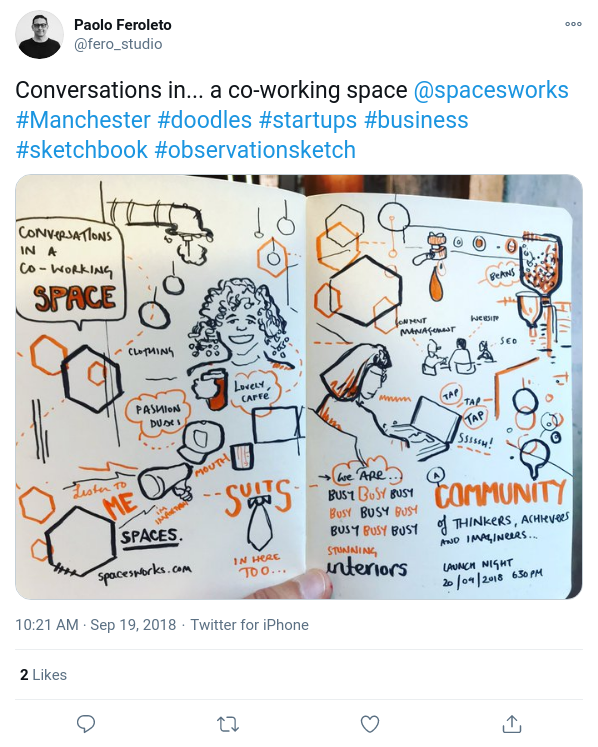 Paolo Feroleto
@fero_studio
Conversations in... a co-working space @spacesworks
#Manchester #doodles #startups #business
#sketchbook #observationsketch
CONVERSATIONS
IN A
CO-WORKING
SPACE
CLOTHING
LOVELY,
CAFFE
FASHION
MOUTH
Listen TO
ME
SPACES.
spacesworks.com
SUITS
IN HERE
TOO...
BEANS
CONTENT
MANAGEMENT
WEBSITE
SEO
TAP
TAP
TAP
SSSSSH!
WE ARE...
BUSY BUSY BUSY
BUSY BUSY BUSY
BUSY BUSY BUSY
STUNNING
interiors
A
COMMUNITY
of THINKERS, ACHIEVERS
AND IMAGINEERS...
LAUNCH NIGHT
20/09/2018 630PM
10:21 AM · Sep 19, 2018 · Twitter for iPhone
2 Likes